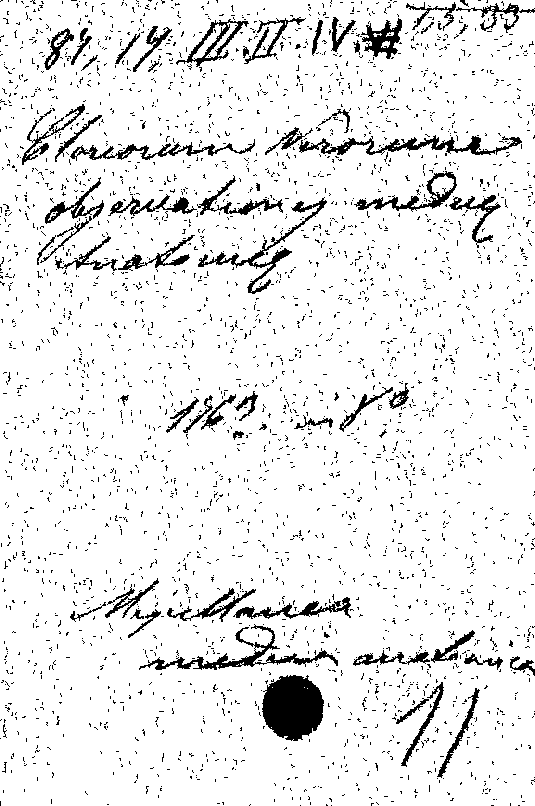 15, 33
87, 14, III. II. IV. #
Clariorum Virorum
observationes medicae
Anatomicae
in 8°
Miscellanea
medica anatomica
11